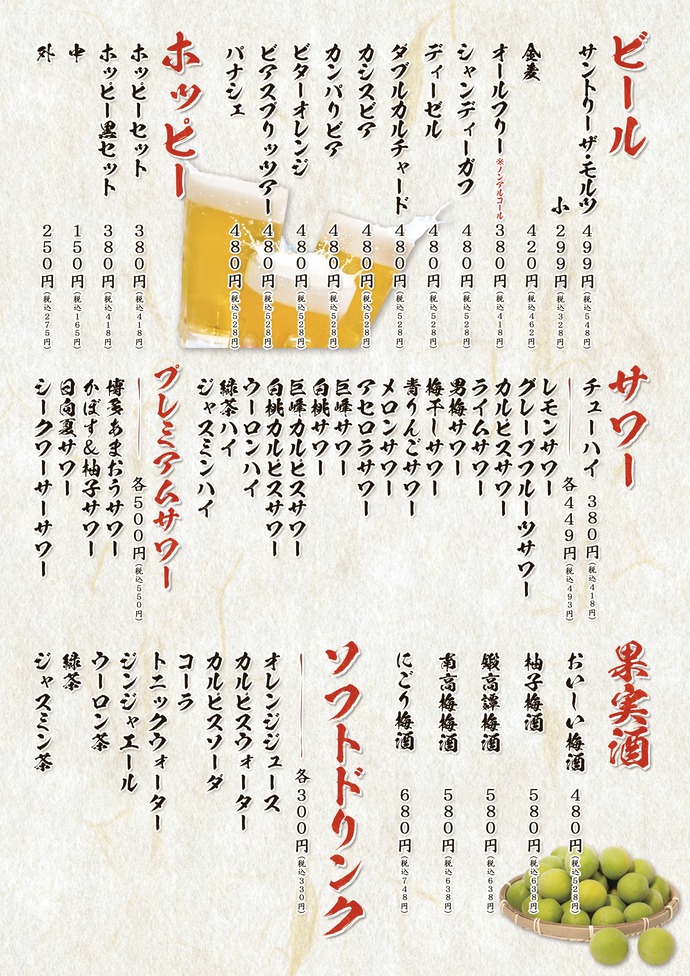 ビール
サントリーザ・モルツ 499円(税込548円)
小 299円(税込328円)
金麦 420円(税込462円)
オールフリー ※ノンアルコール 380円(税込418円)
シャンディーガフ 480円(税込528円)
ディーゼル 480円(税込528円)
ダブルカルチャード 480円(税込528円)
カシスビア 480円(税込528円)
カンパリビア 480円(税込528円)
ビターオレンジ 480円(税込528円)
ビアスプリッツアー 480円(税込528円)
パナシェ 480円(税込528円)
ホッピー
ホッピーセット 380円(税込418円)
ホッピー黒セット 380円(税込418円)
中 150円(税込165円)
外 250円(税込275円)
サワー
チューハイ 380円(税込418円)
各449円(税込493円)
レモンサワー
グレープフルーツサワー
カルピスサワー
ライムサワー
男梅サワー
梅干しサワー
青りんごサワー
メロンサワー
アセロラサワー
巨峰サワー
白桃サワー
巨峰カルピスサワー
白桃カルピスサワー
ウーロンハイ
緑茶ハイ
ジャスミンハイ
プレミアムサワー
各500円(税込550円)
博多あまおうサワー
かぼす&柚子サワー
日向夏サワー
シークワーサーサワー
果実酒
おいしい梅酒 480円(税込528円)
柚子梅酒 580円(税込638円)
鍛高譚梅酒 580円(税込638円)
南高梅梅酒 580円(税込638円)
にごり梅酒 680円(税込748円)
ソフトドリンク
各300円(税込330円)
オレンジジュース
カルピスウォーター
カルピスソーダ
コーラ
トニックウォーター
ジンジャエール
ウーロン茶
緑茶
ジャスミン茶